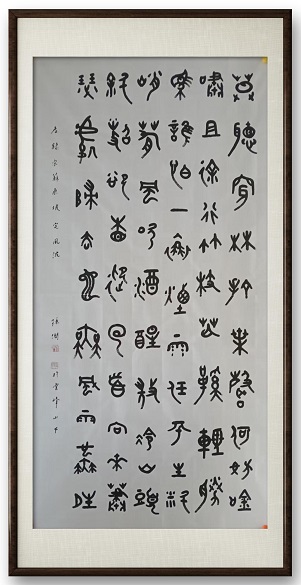 莫聽穿林打葉聲何妨吟
嘯且徐行竹杖芒鞵輕勝
馬誰怕一蓑煙雨任平生料
峭春風吹酒醒微冷山頭
斜照卻相迎回首向來蕭
瑟處歸去也無風雨無晴
右錄宋蘇東坡定風波